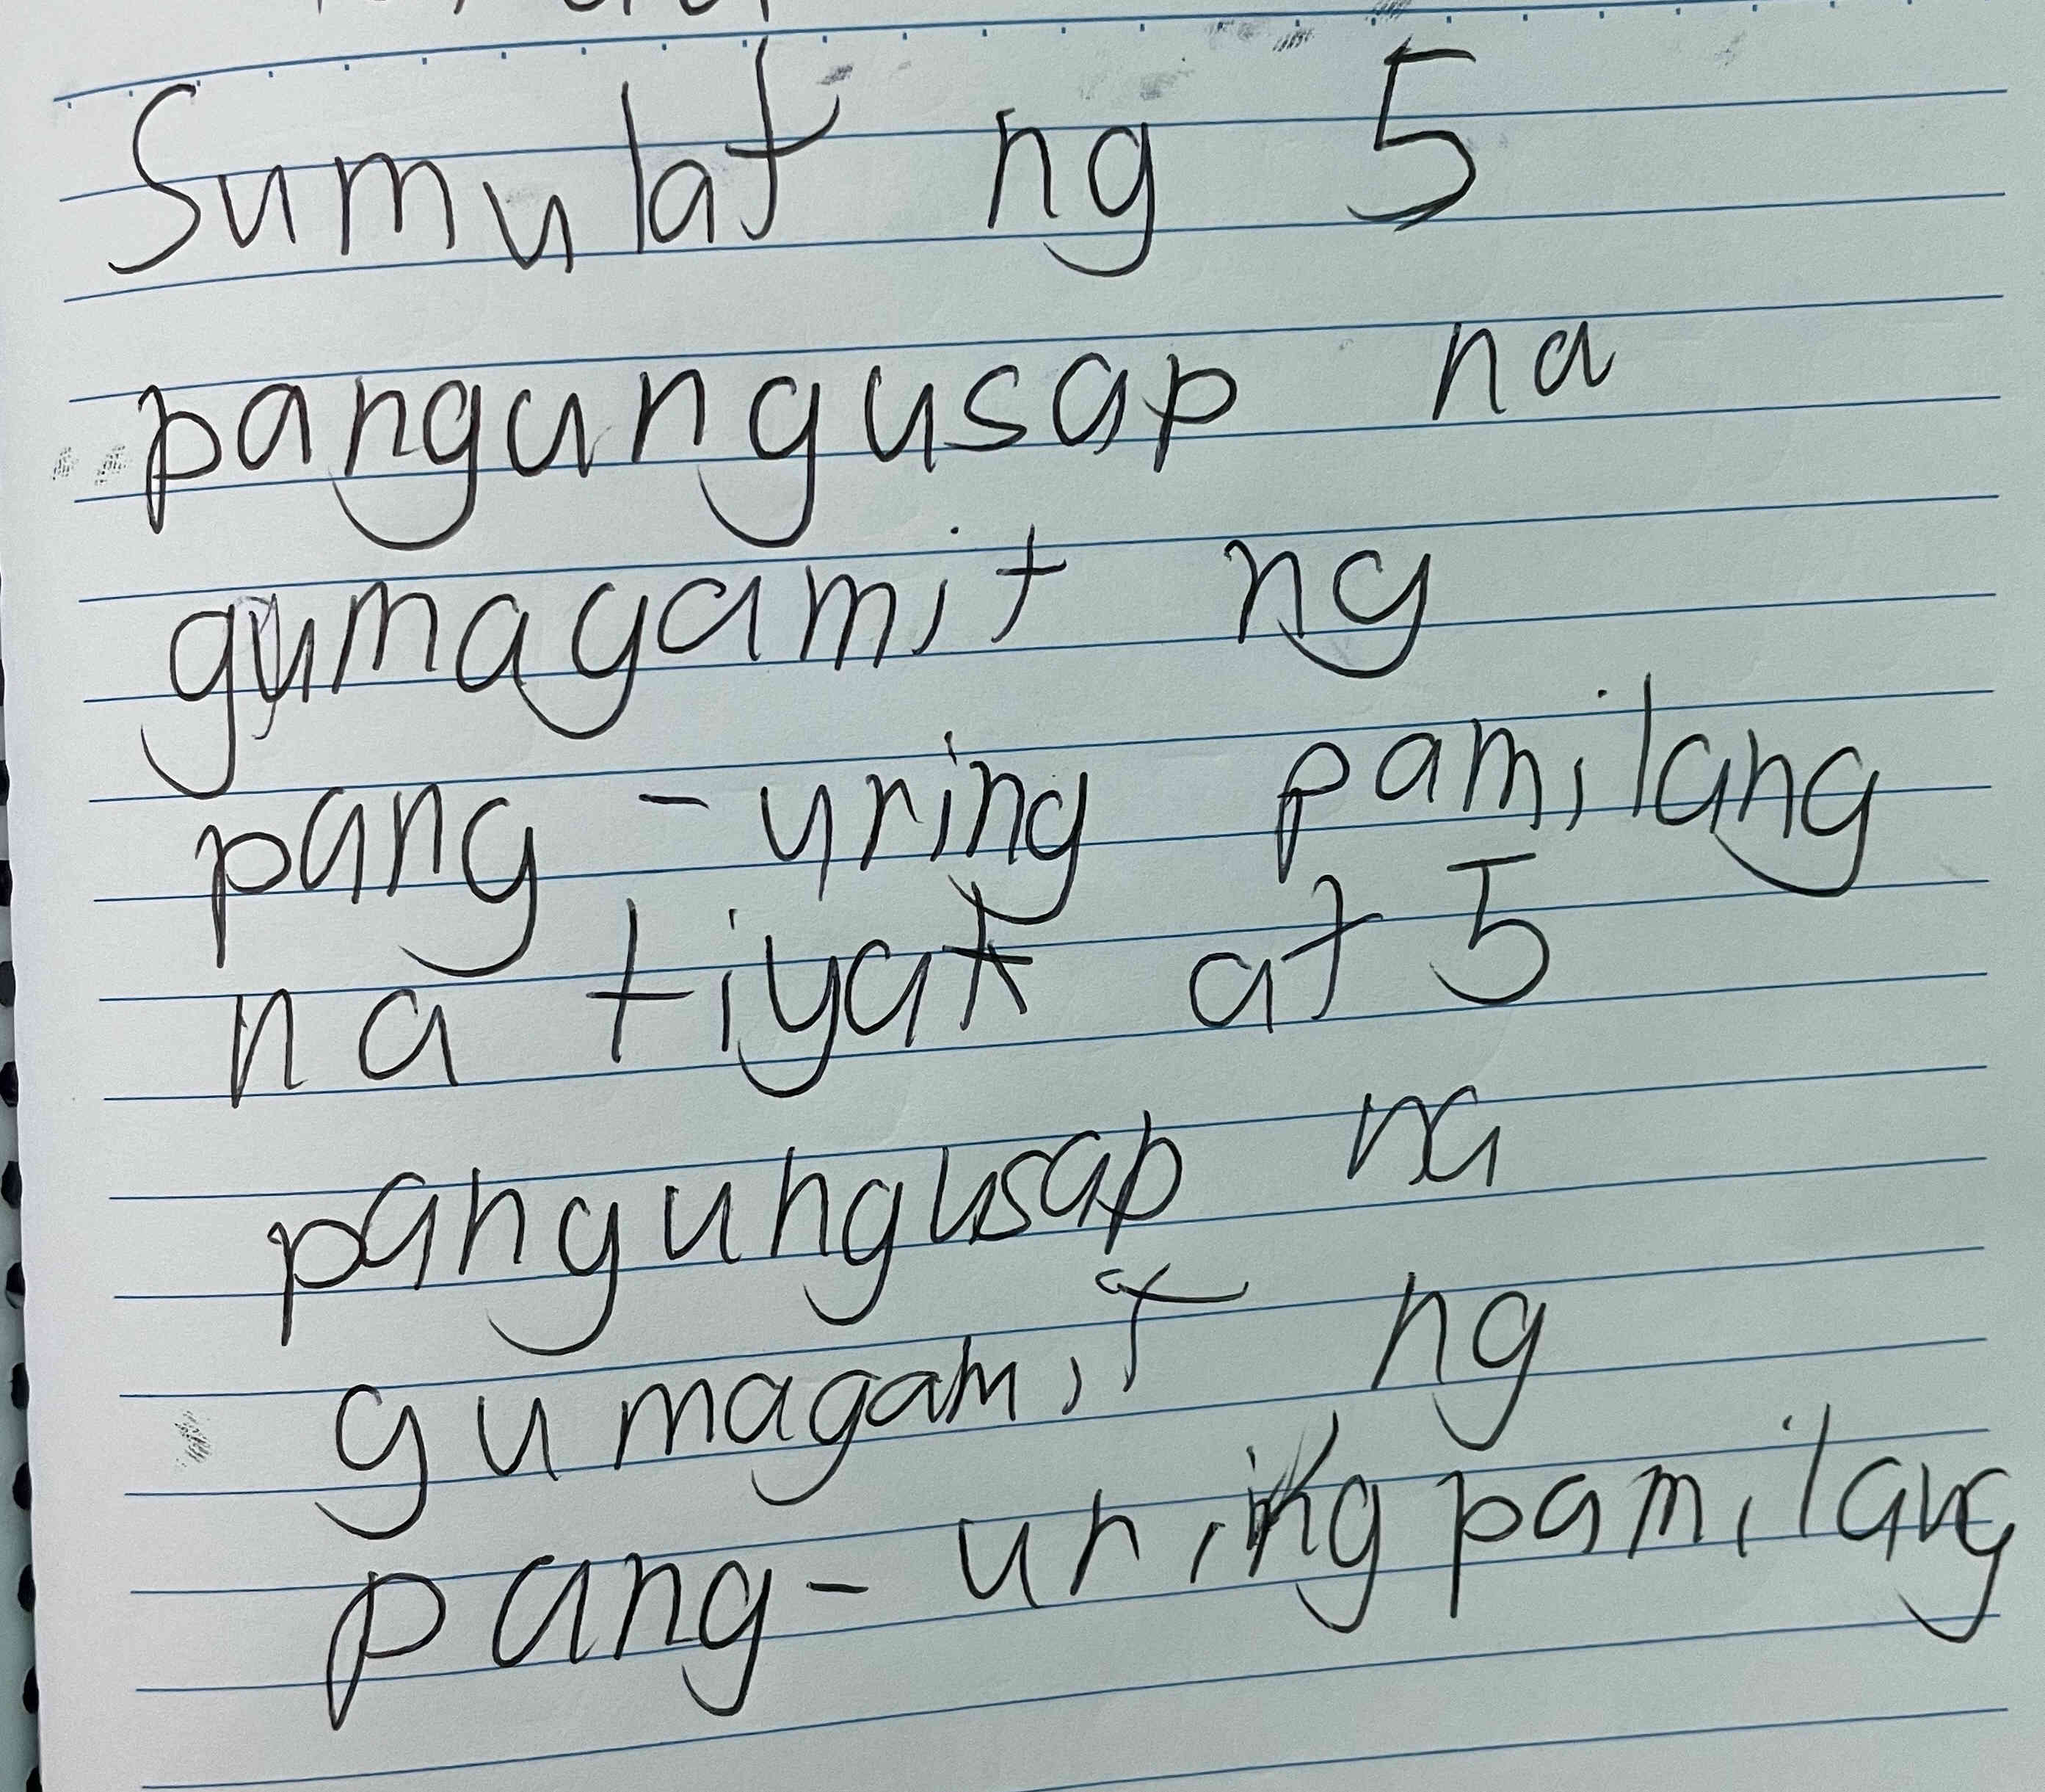 Sumulat ng 5
pangungusap na
gumagamit ng
pang-uring pamilang
na tiyak at 5
pangungusap na
gumagamit ng
pang-uring pamilang